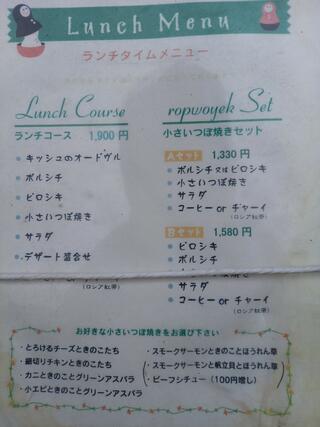 Lunch Menu
ランチタイムメニュー
Lunch Course
ランチコース 1,900 円
キッシュのオードヴル
ボルシチ
ピロシキ
小さいつぼ焼き
サラダ
デザート盛合せ
(ロシア紅茶)
ropwoyek Set
小さいつぼ焼きセット
Aセット 1,330 円
ボルシチ又はピロシキ
小さいつぼ焼き
サラダ
コーヒー or チャーイ
(ロシア紅茶)
Bセット 1,580 円
ピロシキ
ボルシチ
サラダ
コーヒー or チャーイ
(ロシア紅茶)
お好きな小さいつぼ焼きをお選び下さい
・とろけるチーズときのこたち
・細切りチキンときのこたち
・カニときのことグリーンアスパラ
・小エビときのことグリーンアスパラ
・スモークサーモンときのことほうれん草
・スモークサーモンと帆立貝とほうれん草
・ビーフシチュー (100円増し)